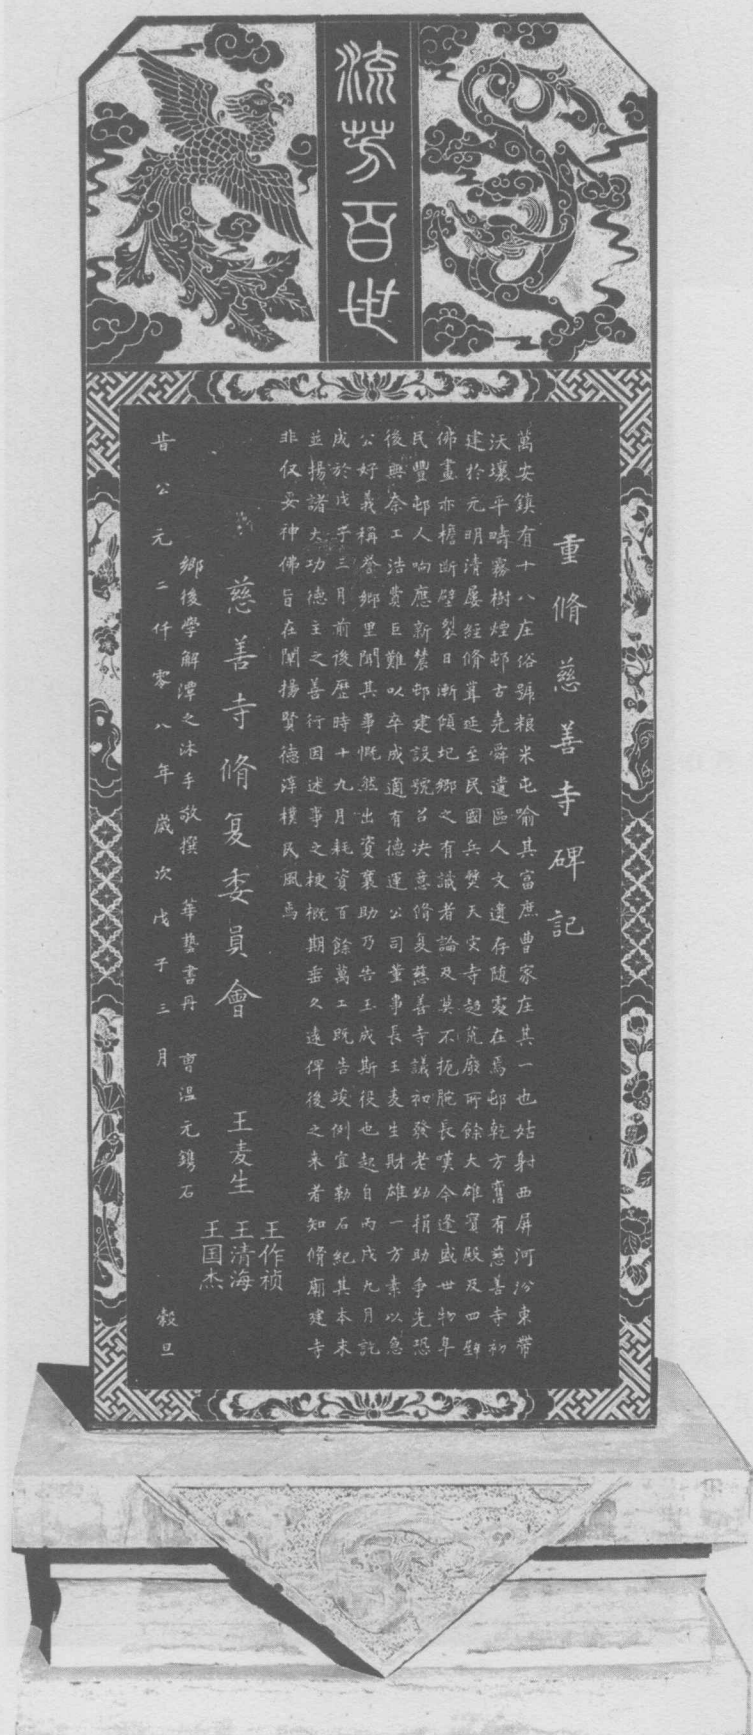 流芳百世
重脩慈善寺碑記
萬安鎮有十八庄俗號粮米屯喻其富庶曹家庄其一也姑射西屏河汾東帶
沃壤平疇霧樹煙邨古堯舜遺區人文遺存随處在焉邨乾方舊有慈善寺初
建於元明清屡經脩葺延至民國兵燹天灾寺趋荒廢所餘大雄寳殿及四壁
佛畫亦檐断壁裂日漸傾圮鄉之有識者論及莫不扼腕長嘆今逢盛世物阜
民豐邨人响應新農邨建設號召决意脩复慈善寺議初發老幼捐助争先恐
後無奈工浩費巨難以卒成適有德運公司董事長王麦生財雄一方素以急
公好義稱誉鄉里聞其事慨然出資襄助乃告玉成斯役也起自丙戌九月訖
成於戊子三月前後歷時十九月耗資百餘萬工既告竣例宜勒石紀其本末
並揚諸大功德主之善行因述事之梗概期垂久遠俾後之来者知脩廟建寺
非仅妥神佛旨在闡揚賢德淳樸民風焉
慈善寺脩复委員會 王麦生
王作祯
王清海
王国杰
鄉後學解潭之沐手敬撰 華藝書丹 曹温元鐫石
旹公元二仟零八年歲次戊子三月 穀旦